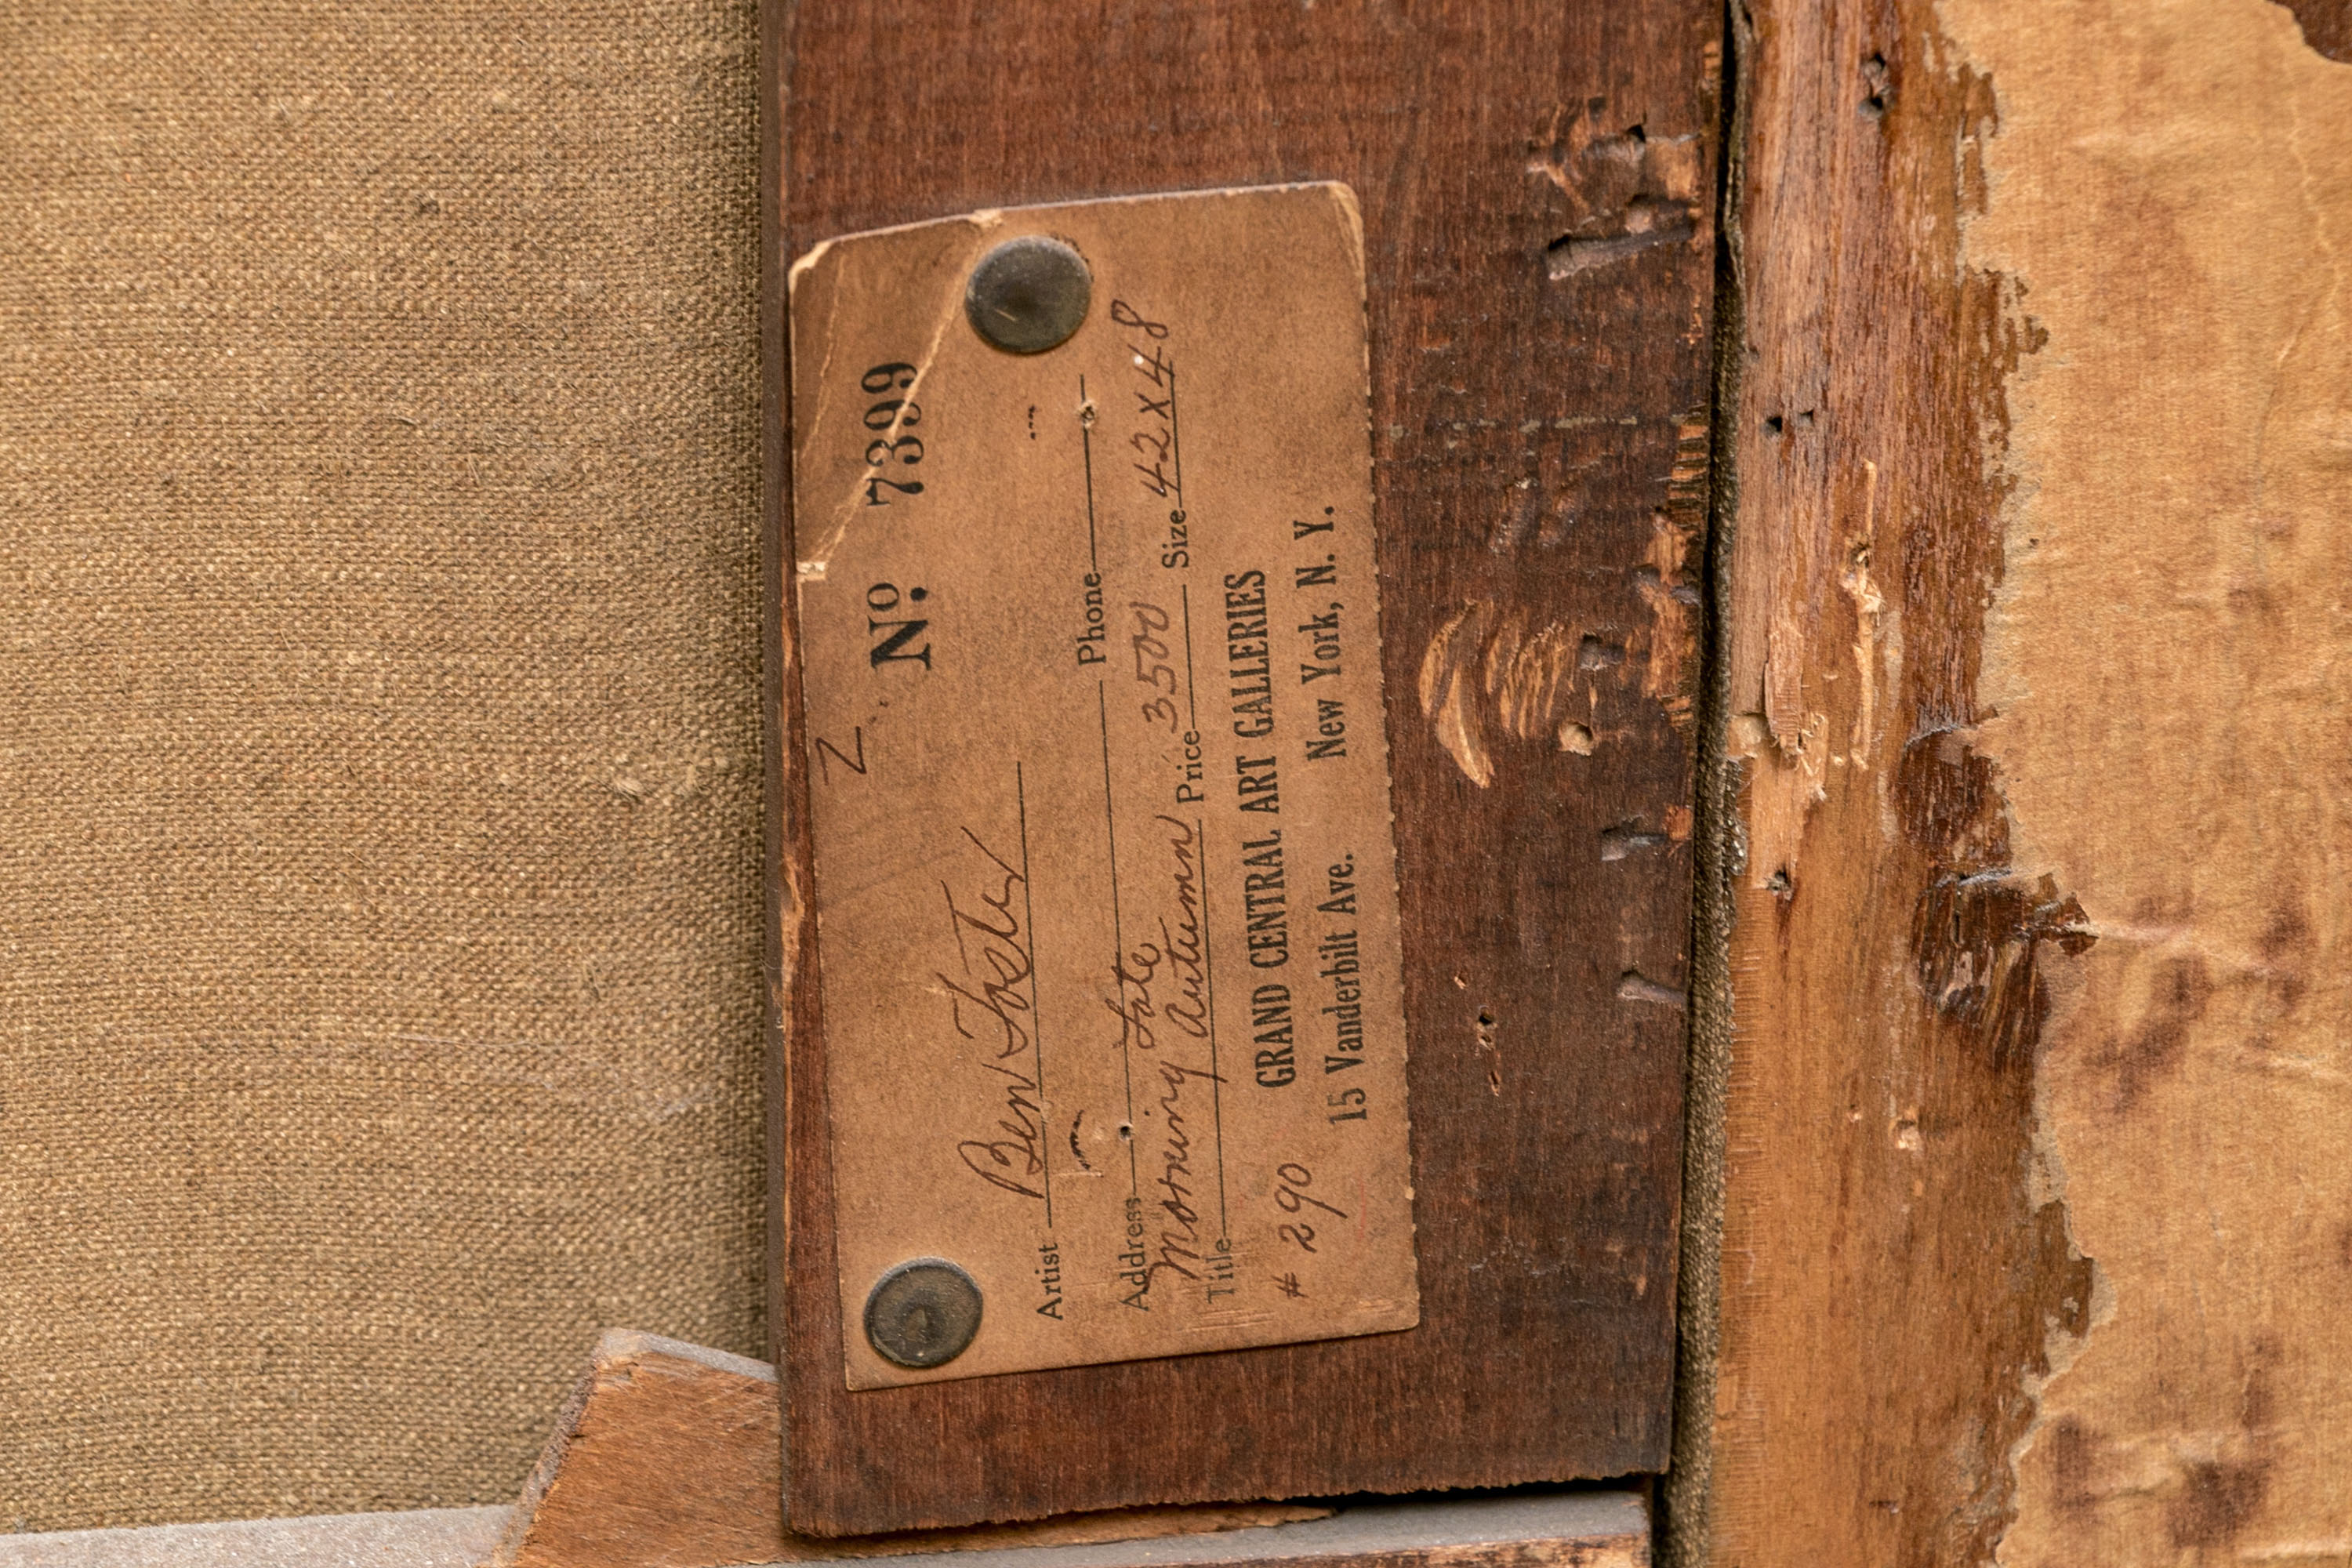 Z
No. 7399
Artist Ben Foster
Address Phone
Late
Title Morning Autumn Price 3500 Size 42x48
GRAND CENTRAL ART GALLERIES
# 290 15 Vanderbilt Ave. New York, N. Y.